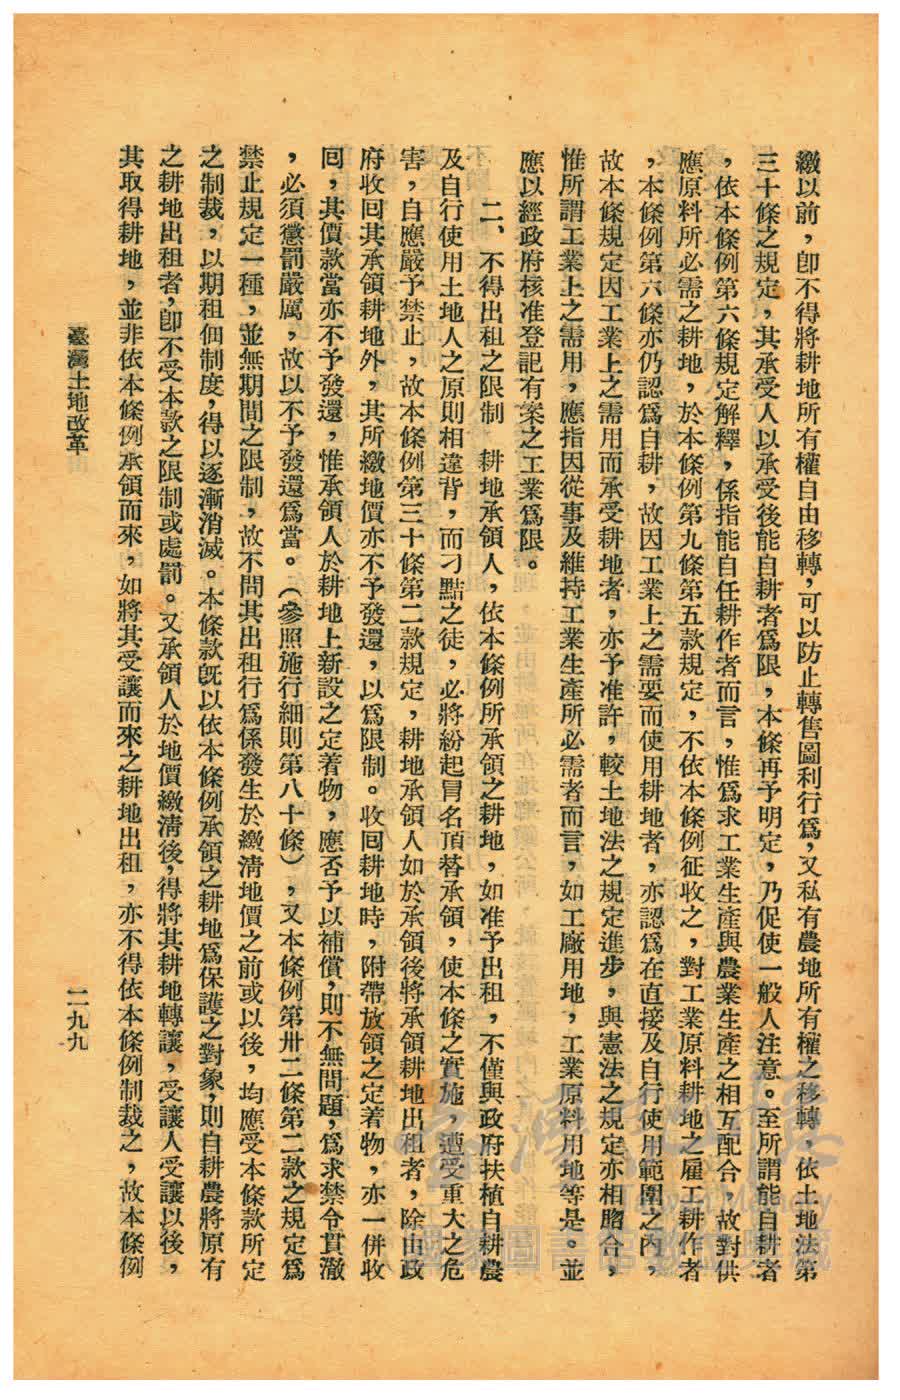 繳以前，卽不得將耕地所有權自由移轉，可以防止轉售圖利行爲，又私有農地所有權之移轉，依土地法第
三十條之規定，其承受人以承受後能自耕者爲限，本條再予明定，乃促使一般人注意。至所謂能自耕者
，依本條例第六條規定解釋，係指能自任耕作者而言，惟爲求工業生產與農業生產之相互配合，故對供
應原料所必需之耕地，於本條例第九條第五款規定，不依本條例征收之，對工業原料耕地之雇工耕作者
，本條例第六條亦仍認爲自耕，故因工業上之需要而使用耕地者，亦認爲在直接及自行使用範圍之內，
故本條規定因工業上之需用而承受耕地者，亦予准許，較土地法之規定進步，與憲法之規定亦相脗合，
惟所謂工業上之需用，應指因從事及維持工業生產所必需者而言，如工廠用地，工業原料用地等是。並
應以經政府核准登記有案之工業爲限。
二、不得出租之限制　耕地承領人，依本條例所承領之耕地，如准予出租，不僅與政府扶植自耕農
及自行使用土地人之原則相違背，而刁黠之徒，必將紛起冒名頂替承領，使本條之實施，遭受重大之危
害，自應嚴予禁止，故本條例第三十條第二款規定，耕地承領人如於承領後將承領耕地出租者，除由政
府收回其承領耕地外，其所繳地價亦不予發還，以爲限制。收回耕地時，附帶放領之定着物，亦一併收
回，其價款當亦不予發還，惟承領人於耕地上新設之定着物，應否予以補償，則不無問題，爲求禁令貫澈
，必須懲罰嚴厲，故以不予發還爲當。（參照施行細則第八十條），又本條例第卅二條第二款之規定爲
禁止規定一種，並無期間之限制，故不問其出租行爲係發生於繳清地價之前或以後，均應受本條款所定
之制裁，以期租佃制度，得以逐漸消滅。本條款旣以依本條例承領之耕地爲保護之對象，則自耕農將原有
之耕地出租者，卽不受本款之限制或處罰。又承領人於地價繳清後，得將其耕地轉讓，受讓人受讓以後，
其取得耕地，並非依本條例承領而來，如將其受讓而來之耕地出租，亦不得依本條例制裁之，故本條例
臺灣土地改革
二九九